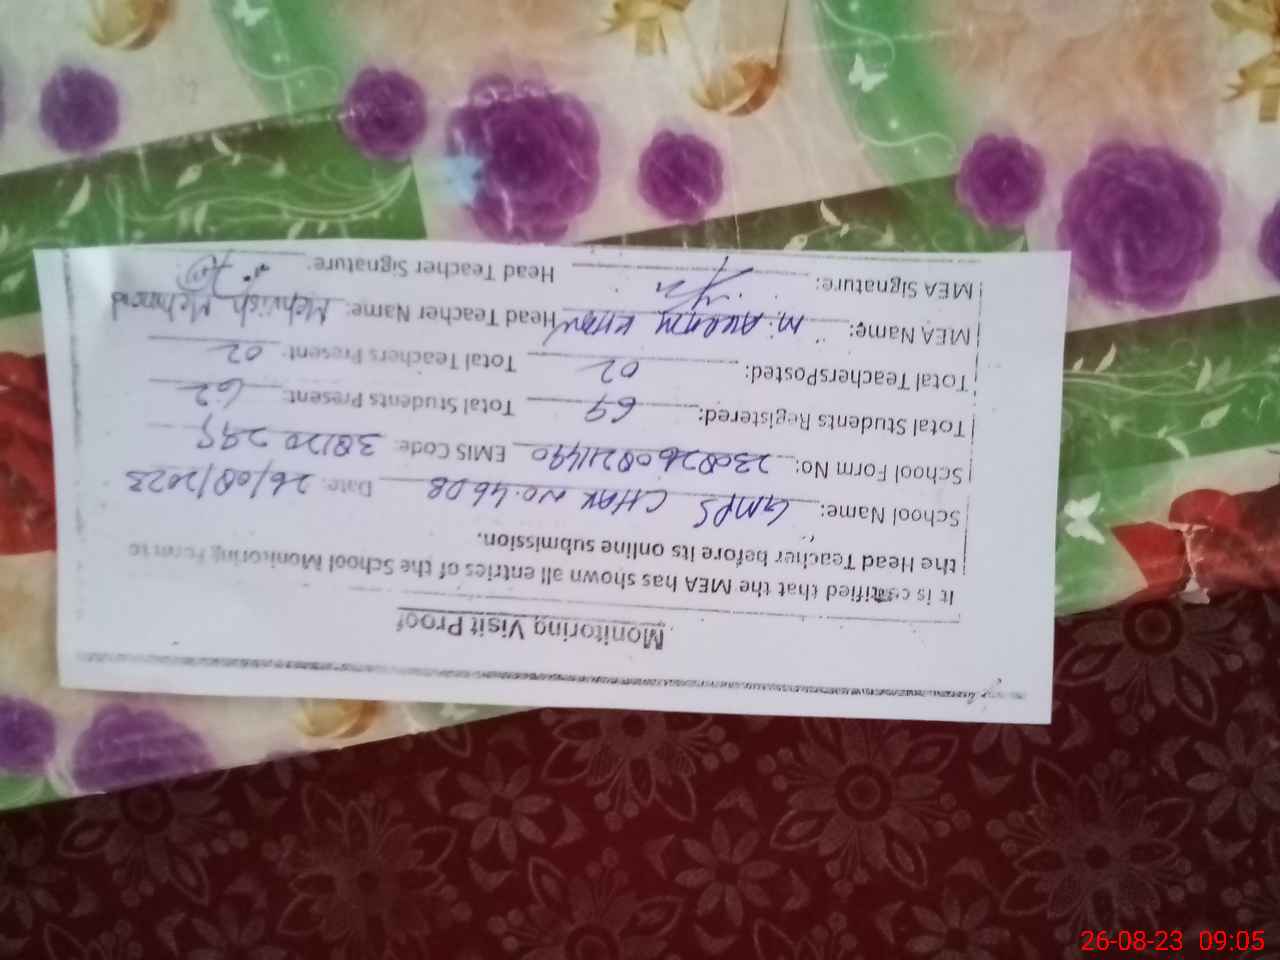 Monitoring Visit Proof
It is certified that the MEA has shown all entries of the School Monitoring Form to
the Head Teacher before its online submission.
School Name: GMPS CHAK NO.46 DB Date: 26/08/2023
School Form No: EMIS Code:
Total Students Registered: 69 Total Students Present: 62
Total TeachersPosted: 02 Total Teachers Present: 02
MEA Name: M. KHAN Head Teacher Name: Mehwish Mehmood
MEA Signature: Head Teacher Signature:
26-08-23 09:05